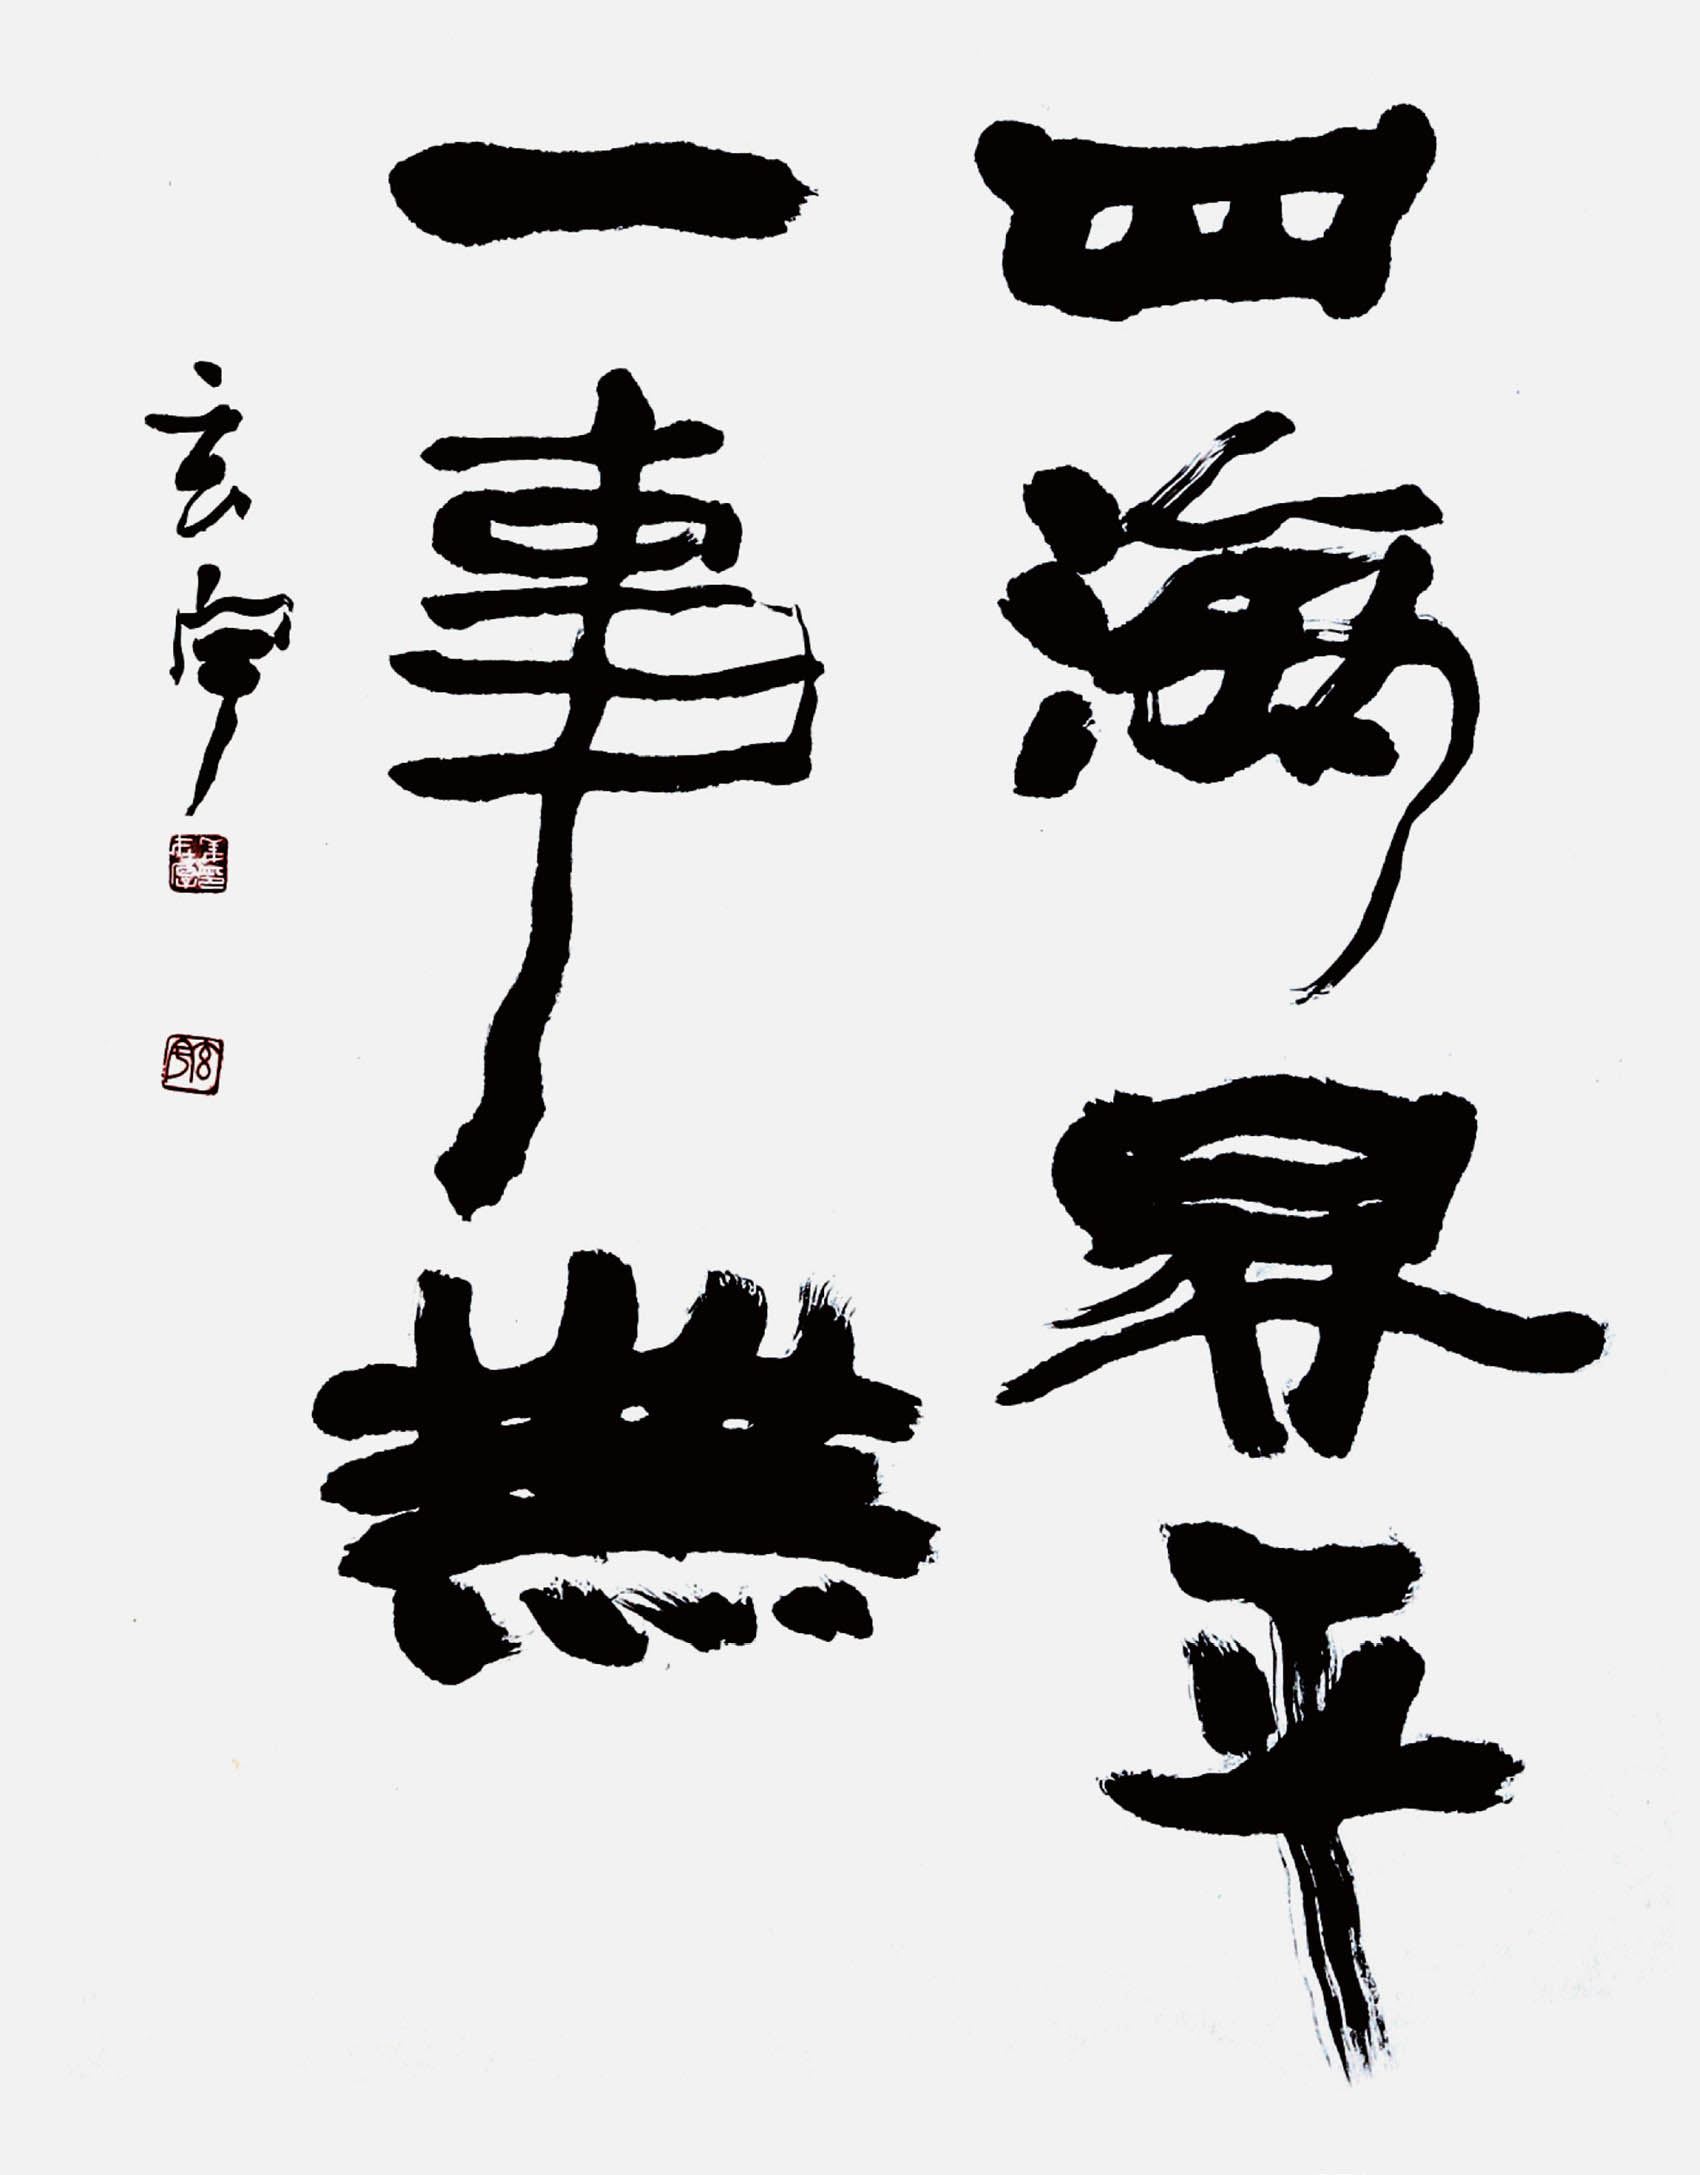 四海昇平
一事無
玄